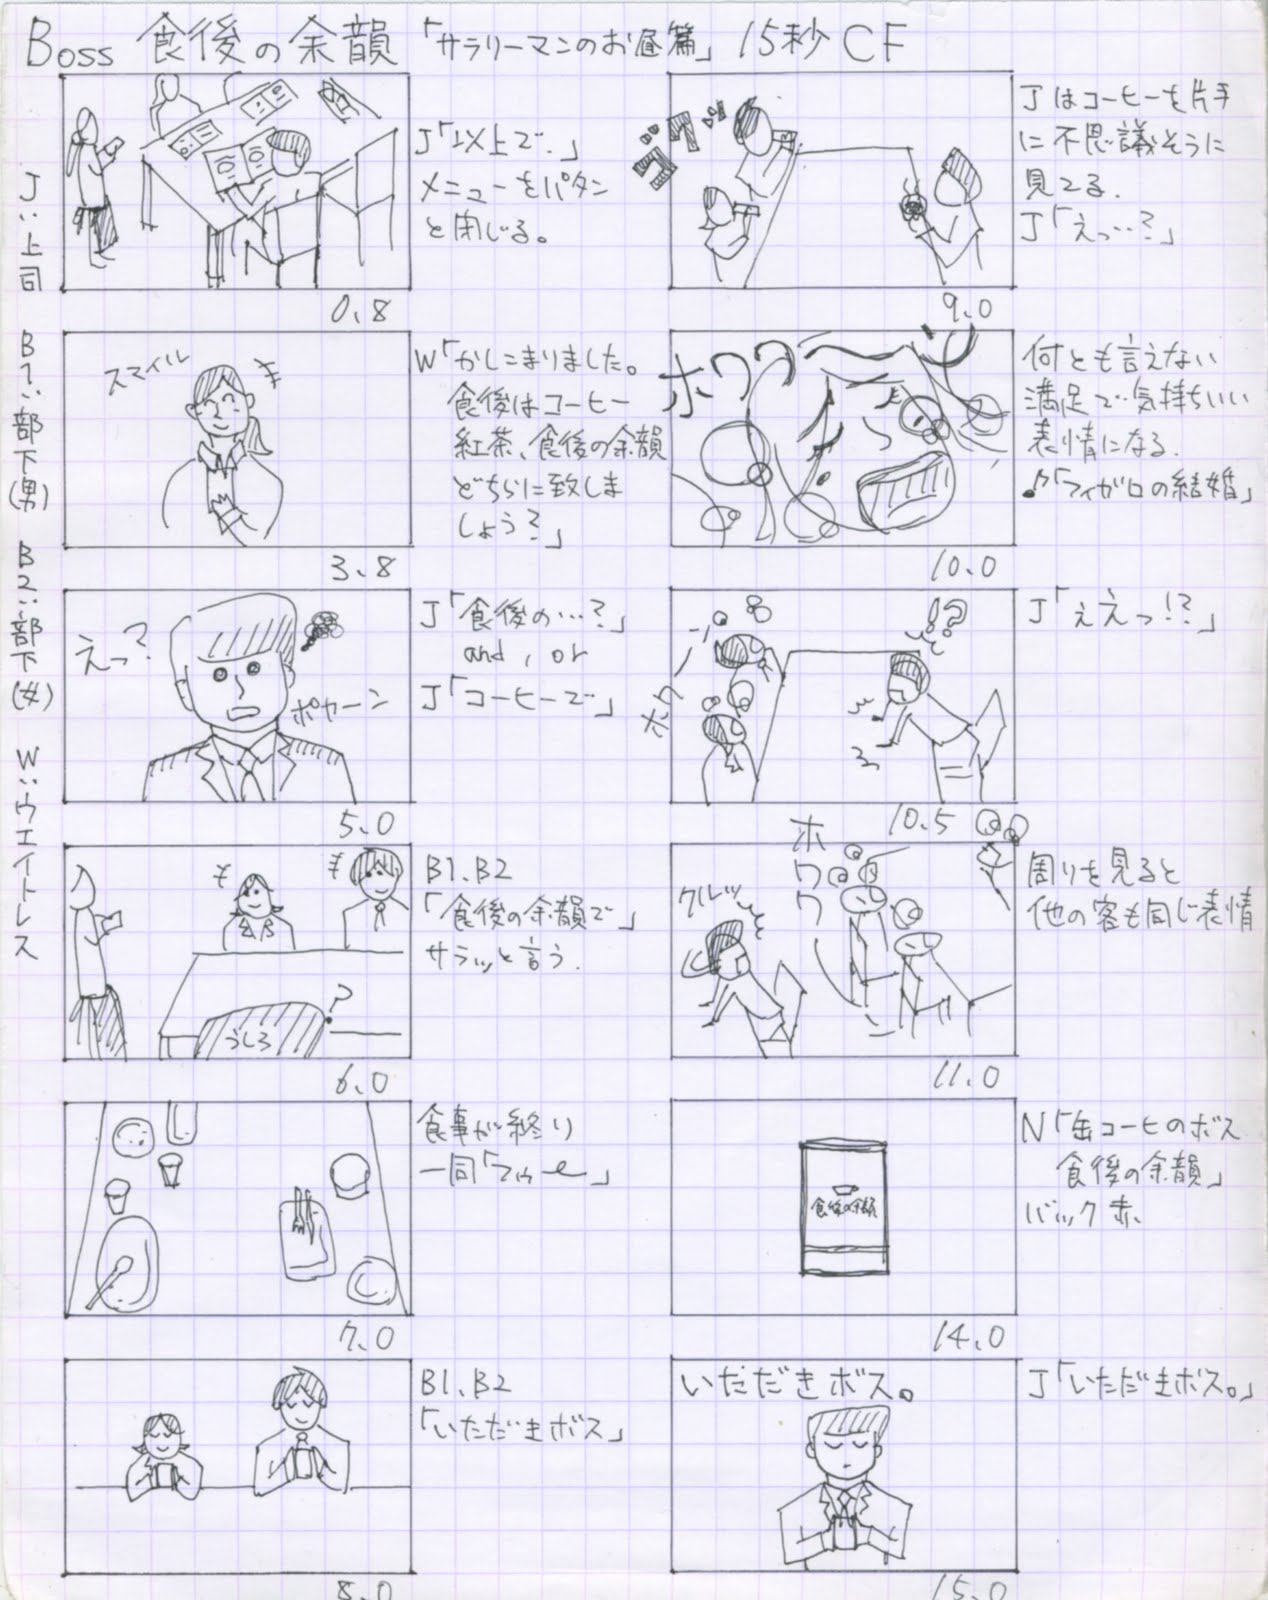 Boss 食後の余韻 「サラリーマンのお昼篇」 15秒 CF
J:上司
B1:部下(男)
B2:部下(女)
W:ウエイトレス
J「以上で。」
メニューをパタン
と閉じる。
0.8
スマイル
W「かしこまりました。
食後はコーヒー
紅茶、食後の余韻
どちらに致しま
しょう?」
3.8
えっ?
ポカーン
J「食後の…?」
and, or
J「コーヒーで」
5.0
うしろ
?
B1、B2
「食後の余韻で」
サラッと言う.
6.0
食事が終り
一同「フゥー」
7.0
B1、B2
「いただきボス」
8.0
ゴクッ
Jはコーヒーを片手
に不思議そうに
見てる.
J「えっ…?」
9.0
ホワワワ
何とも言えない
満足で気持ちいい
表情になる.
♪「フィガロの結婚」
10.0
ホワーン
!?
J「ええっ!?」
10.5
クルッ
ホワワワーン
周りを見ると
他の客も同じ表情
11.0
食後の余韻
N「缶コーヒのボス
食後の余韻」
バック赤
14.0
いただきボス。
J「いただきボス。」
15.0